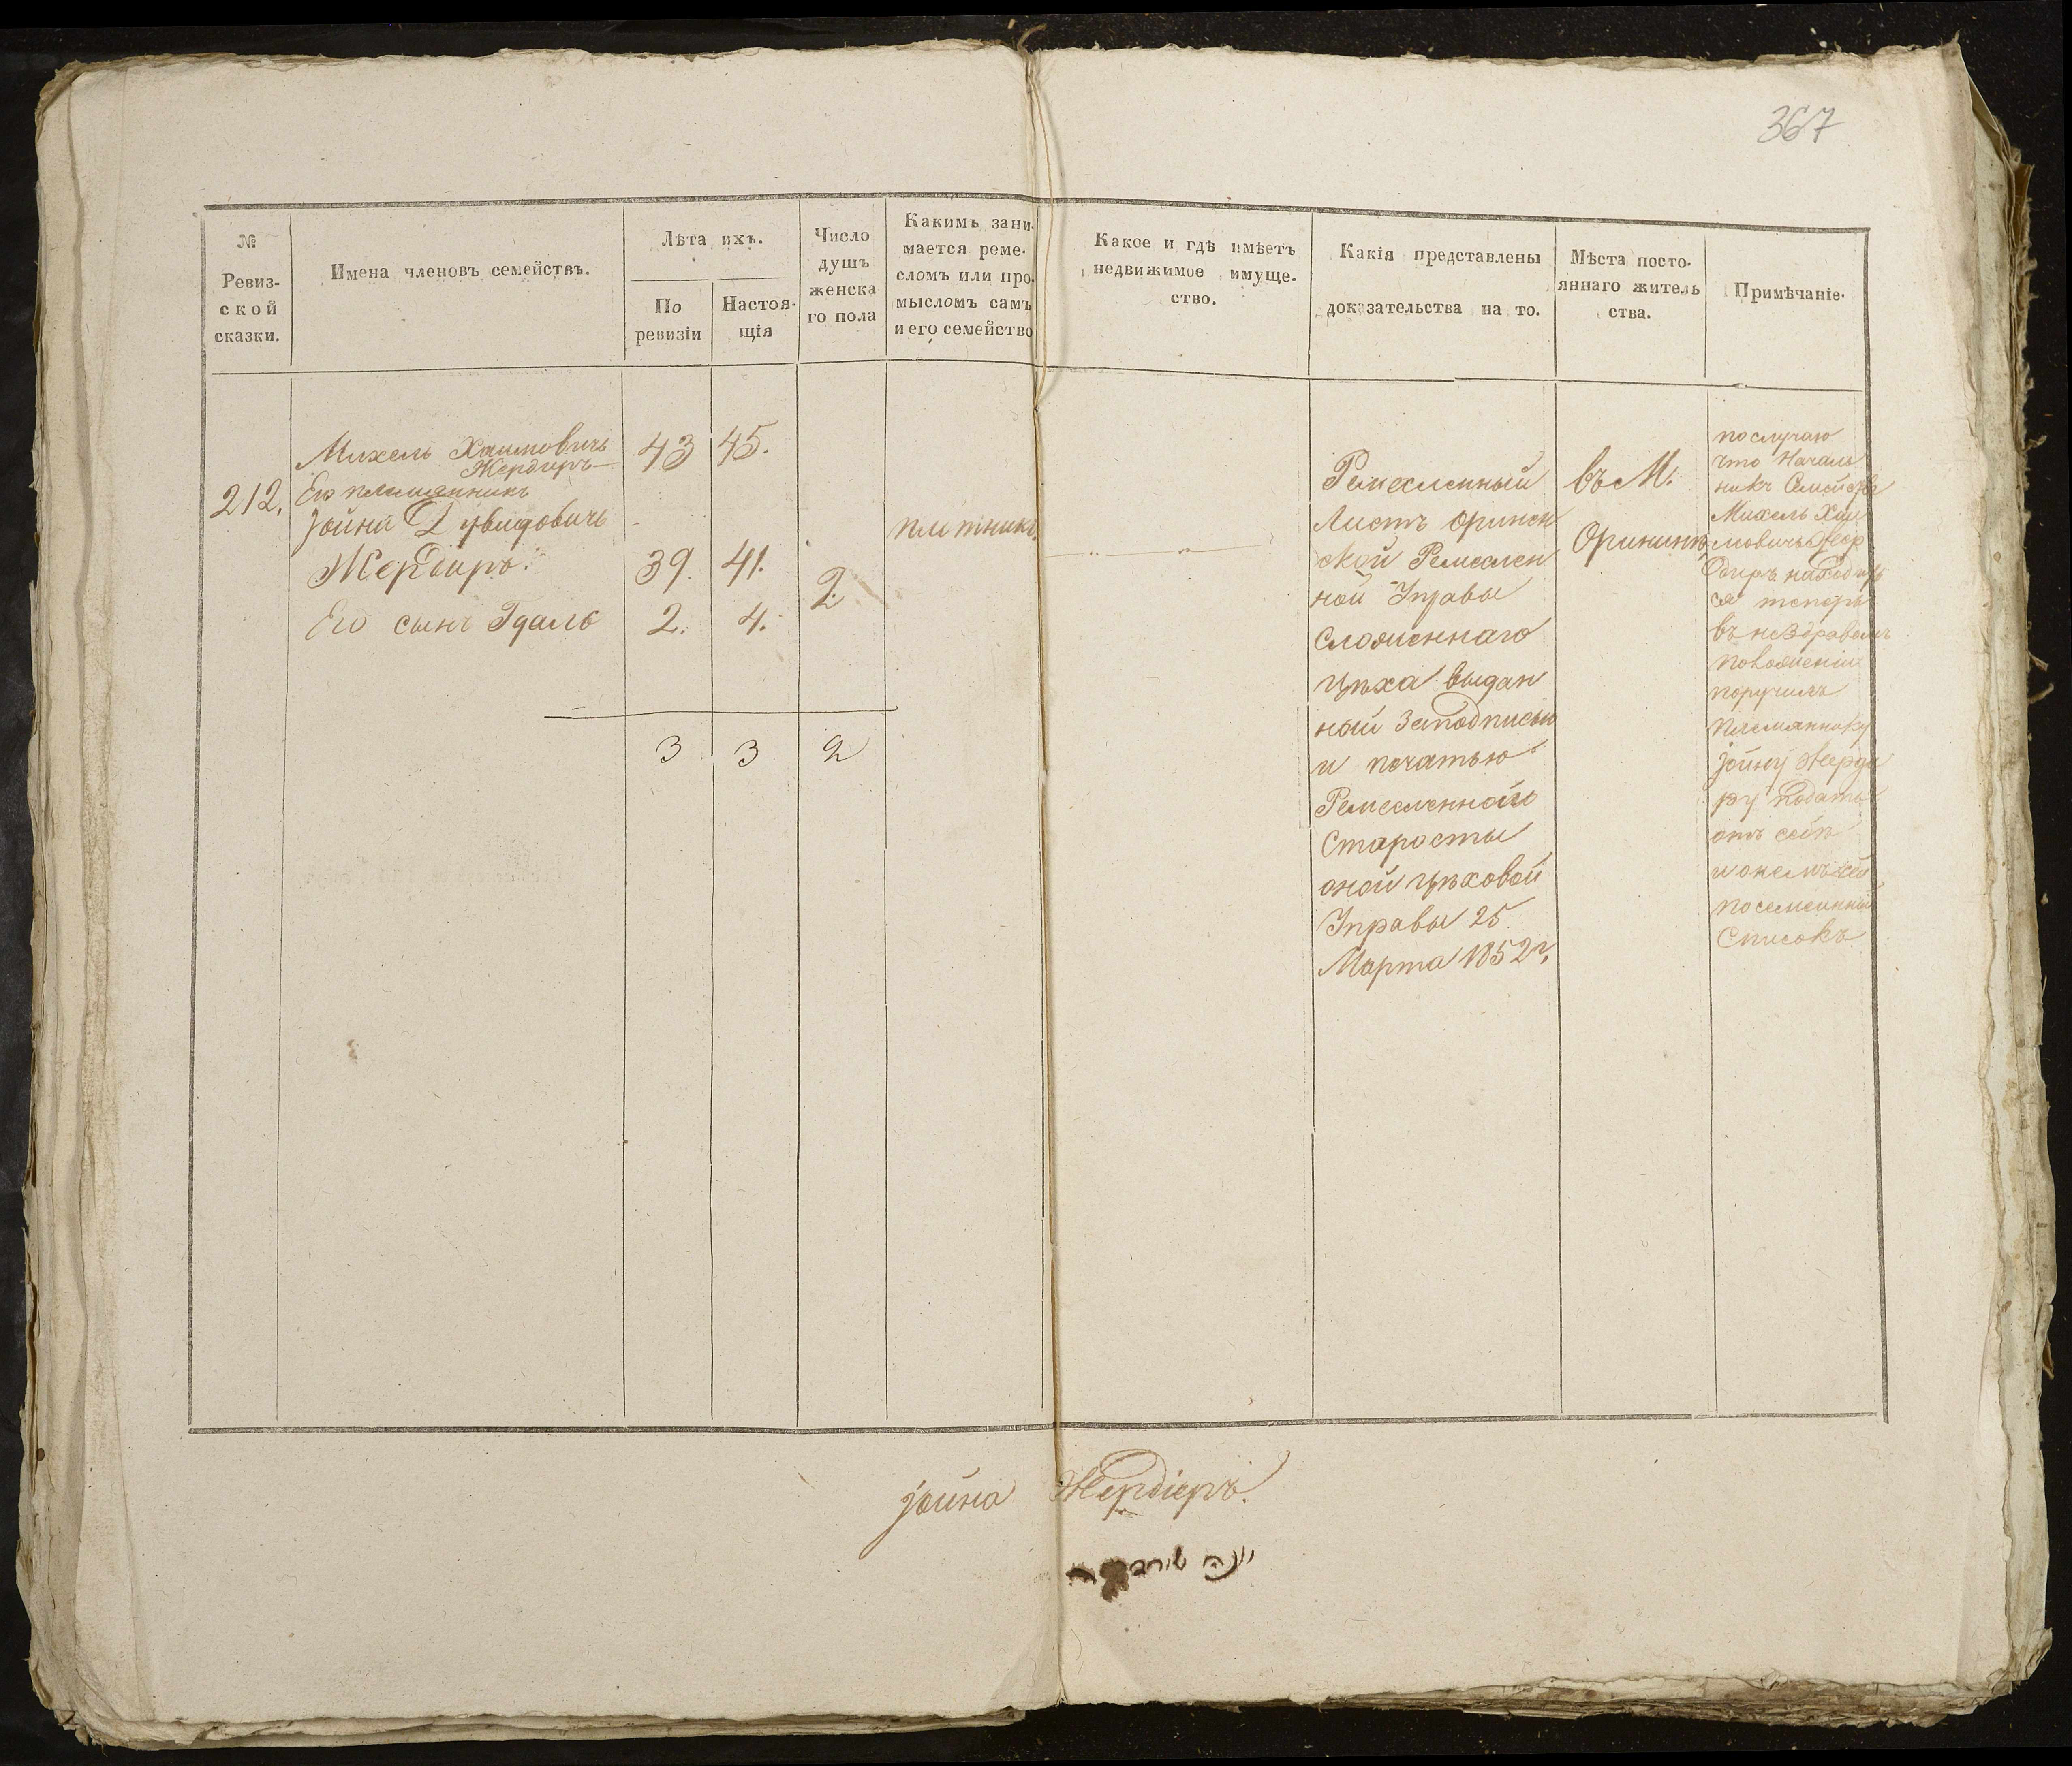 367
№ Ревиз-
ской
сказки.
Имена членовъ семействъ.
Лѣта ихъ.
По
ревизіи
Настоя-
щія
Число
душъ
женска
го пола
Какимъ зани-
мается реме-
сломъ или про-
мысломъ самъ
и его семейство
Какое и гдѣ имѣетъ
недвижимое имуще-
ство.
Какія представлены
доказательства на то.
Мѣста посто-
яннаго житель
ства.
Примѣчаніе.
212.
Михель Хаимовичъ
Жердиръ
43 45.
Его племянникъ
Іойна Дувидовичъ
Жердиръ.
39. 41.
2.
Его сынъ Гдаль
2. 4.
3 3 2
плитникъ
Ремесленный
Листъ Оринен
ской Ремеслен
ной Управы
Сложеннаго
Цѣха выдан
ный Заподписью
и печатью
Ремесленной
Старосты
оной цѣховой
Управы 25
Марта 1852 г.
въ М.
Орининѣ
послучаю
что Началь
никъ Семейства
Михель Хаи
мовичъ Жер
диръ находит
ся теперь
въ нездравомъ
положеніи
поручилъ
племяннику
Іойну Жерди
ру подать
отъ себѣ
посемейный
Списокъ
Іойна Жердіеръ.